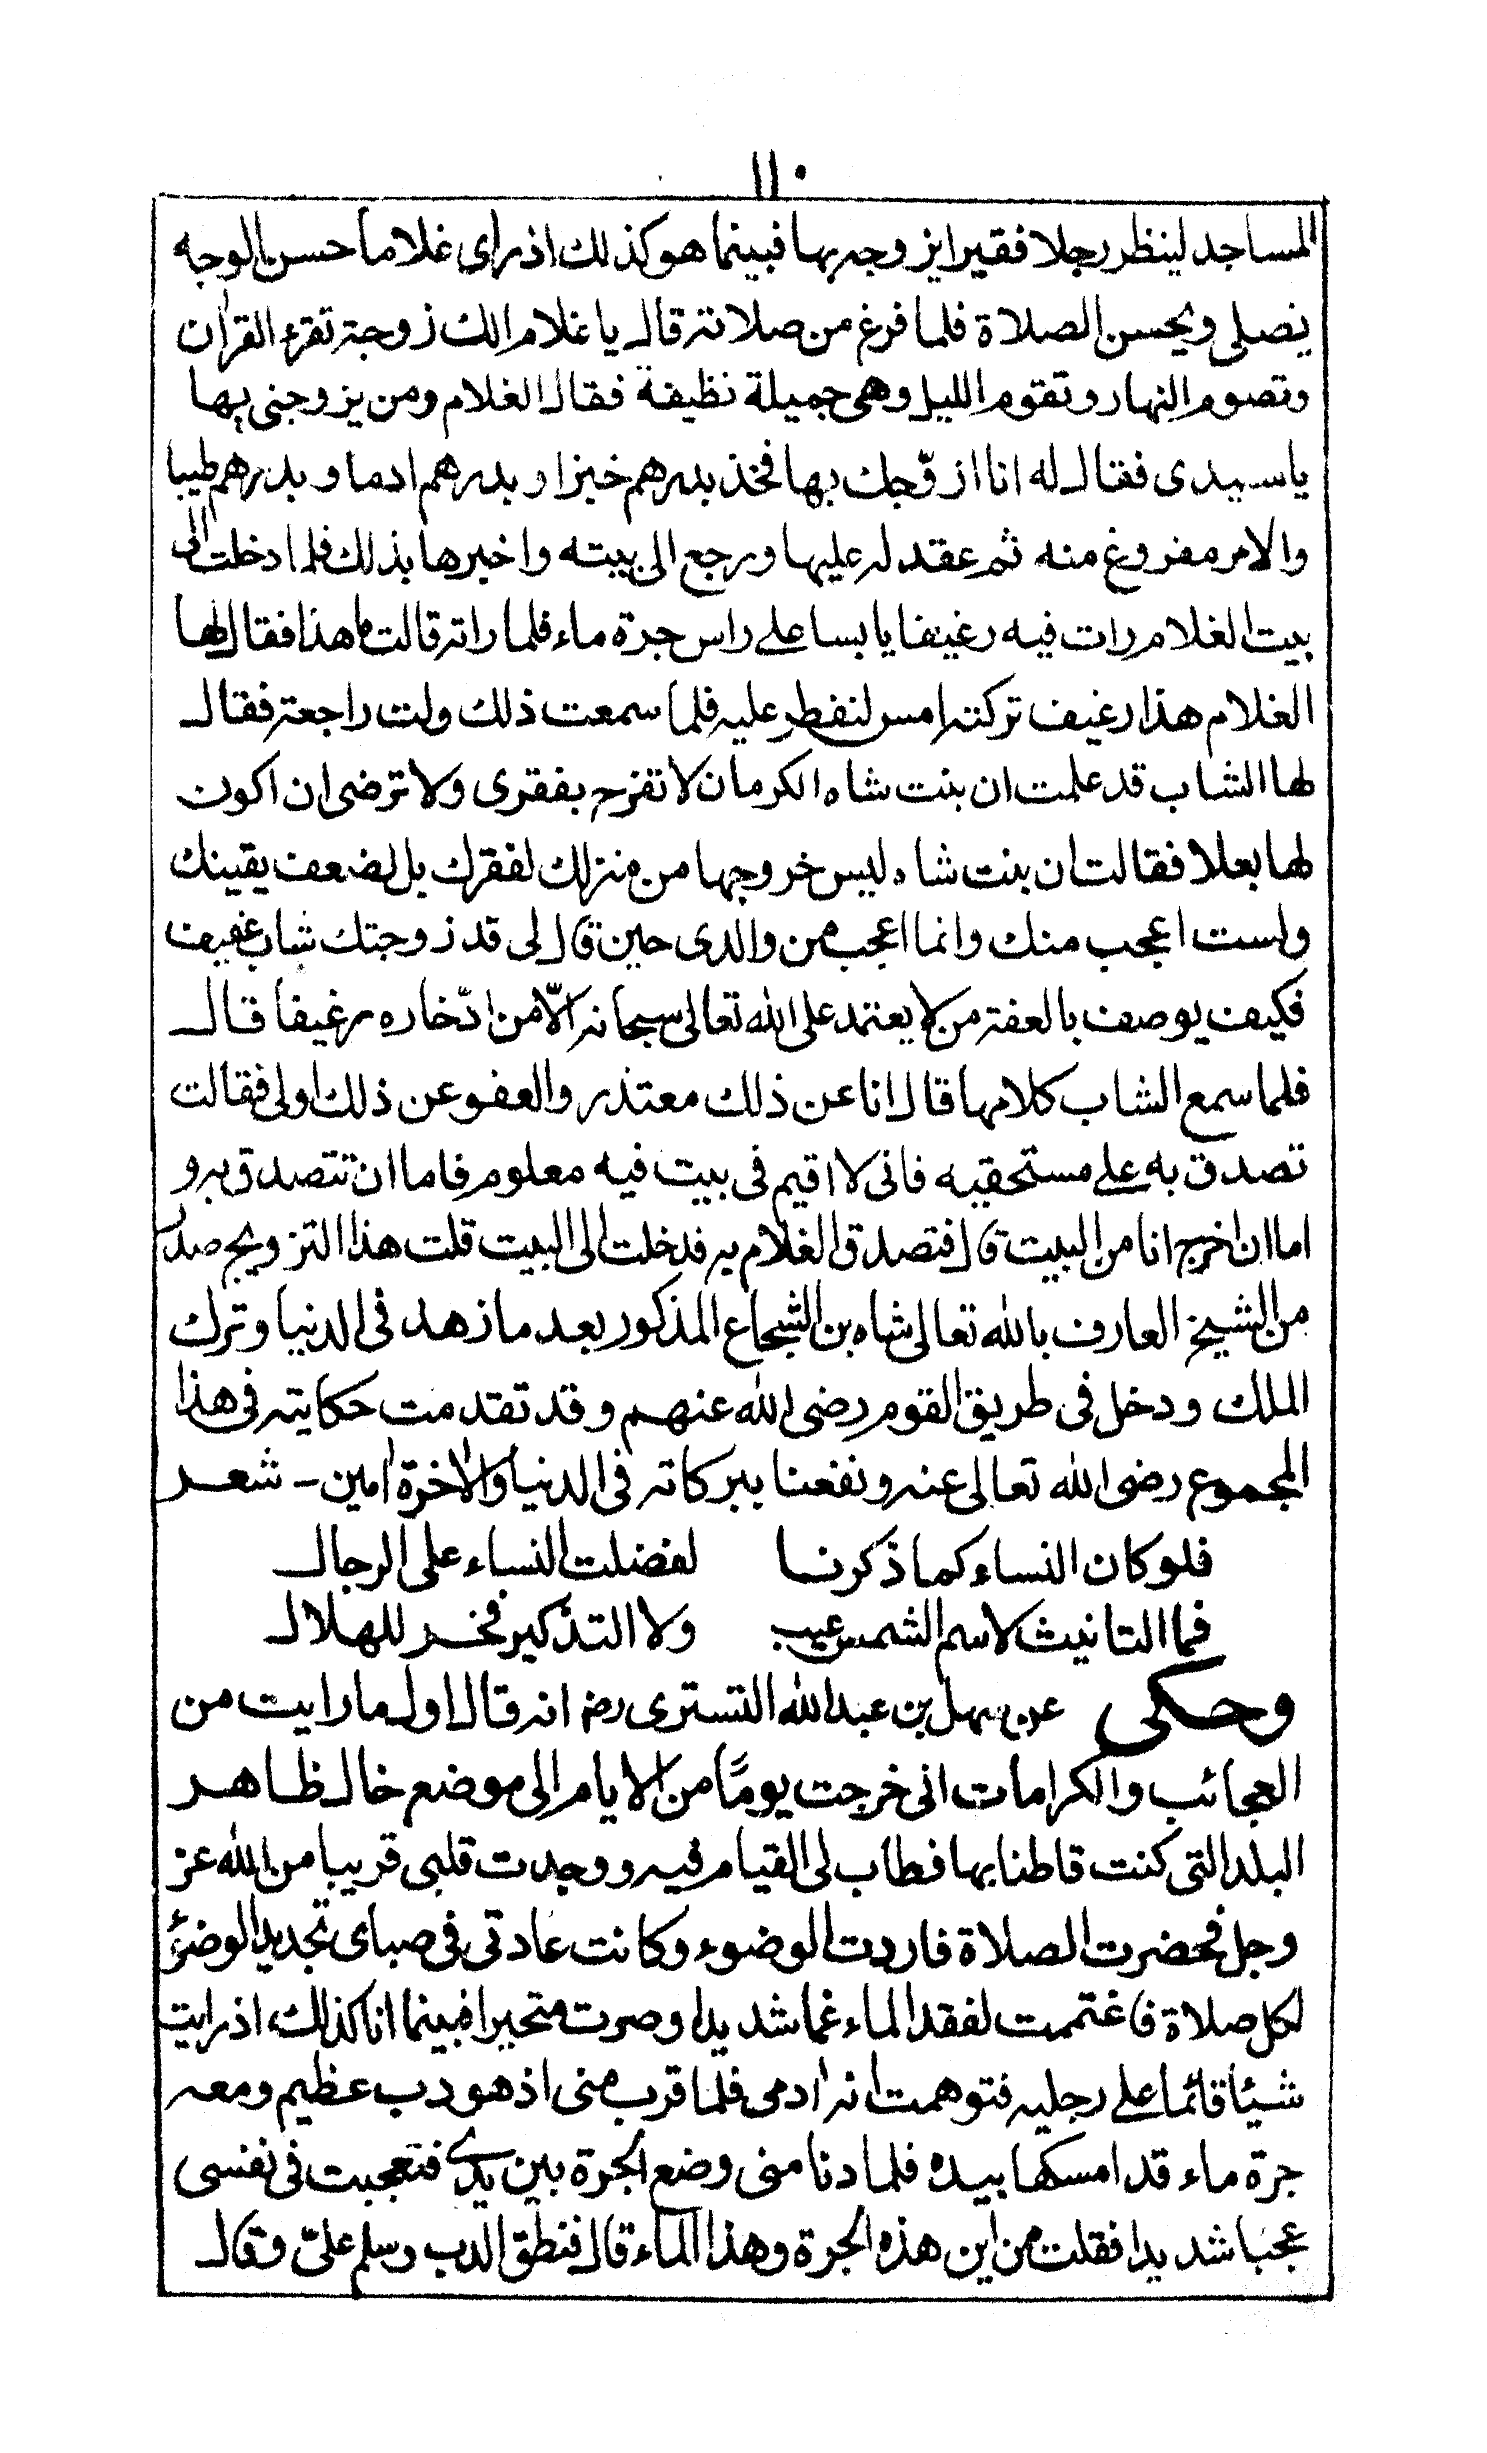 ١١٠
المساجد لينظر رجلا فقيرا يزوجه بها فبينما هو كذلك اذ راى غلاما حسن الوجه
يصلى ويحسن الصلاة فلما فرغ من صلاته قال يا غلام الك زوجة تقرء القران
وتصوم النهار وتقوم الليل وهى جميلة نظيفة فقال الغلام ومن يزوجنى بها
يا سيدى فقال له انا ازوّجك بها فخذ بدرهم خبزا وبدرهم ادما وبدرهم طيبا
والامر مفروغ منه ثم عقد له عليها ورجع الى بيته واخبرها بذلك فلما دخلت الى
بيت الغلام رات فيه رغيفا يابسا على راس جرة ماء فلما راته قالت ما هذا فقال لها
الغلام هذا رغيف تركته امس لنفطر عليه فلما سمعت ذلك ولت راجعة فقال
لها الشاب قد علمت ان بنت شاه الكرمان لا تفرح بفقرى ولا ترضى ان اكون
لها بعلا فقالت ان بنت شاه ليس خروجها من منزلك لفقرك بل لضعف يقينك
ولست اعجب منك وانما اعجب من والدى حين قال لى قد زوجتك شاب عفيف
فكيف يوصف بالعفة من لا يعتمد على الله تعالى سبحانه الّا من ادّخاره رغيفا قال
فلما سمع الشاب كلامها قال انا عن ذلك معتذر والعفو عن ذلك اولى فقالت
تصدق به على مستحقيه فانى لا اقيم فى بيت فيه معلوم فاما ان تتصدق به و
اما ان اخرج انا من البيت قال فتصدق الغلام به فدخلت الى البيت قلت هذا التزويج صدر
من الشيخ العارف بالله تعالى شاه بن الشجاع المذكور بعد ما زهد فى الدنيا وترك
الملك ودخل فى طريق القوم رضى الله عنهم وقد تقدمت حكايته فى هذا
المجموع رضى الله تعالى عنه ونفعنا ببركاته فى الدنيا والاخرة امين - شعر
فلو كان النساء كما ذكرنا لفضلت النساء على الرجال
فما التانيث لاسم الشمس عيب ولا التذكير فخر للهلال
وحكى عن سهل بن عبد الله التسترى رض انه قال اول ما رايت من
العجائب والكرامات انى خرجت يومًا من الايام الى موضع خال ظاهر
البلد التى كنت قاطنا بها فطاب لى القيام فيه ووجدت قلبى قريبا من الله عز
وجل فحضرت الصلاة فاردت الوضوء وكانت عادتى فى صباى تجديد الوضؤ
لكل صلاة فاغتممت لفقد الماء غما شديدا وصرت متحيرا فبينما انا كذلك اذ رايت
شيئا قائما على رجليه فتوهمت انه ادمى فلما قرب منى اذ هو دب عظيم ومعه
جرة ماء قد امسكها بيده فلما دنا منى وضع الجرة بين يدى فتعجبت فى نفسى
عجبا شديدا فقلت من اين هذه الجرة وهذا الماء قال فنطق الدب وسلم علىّ وقال